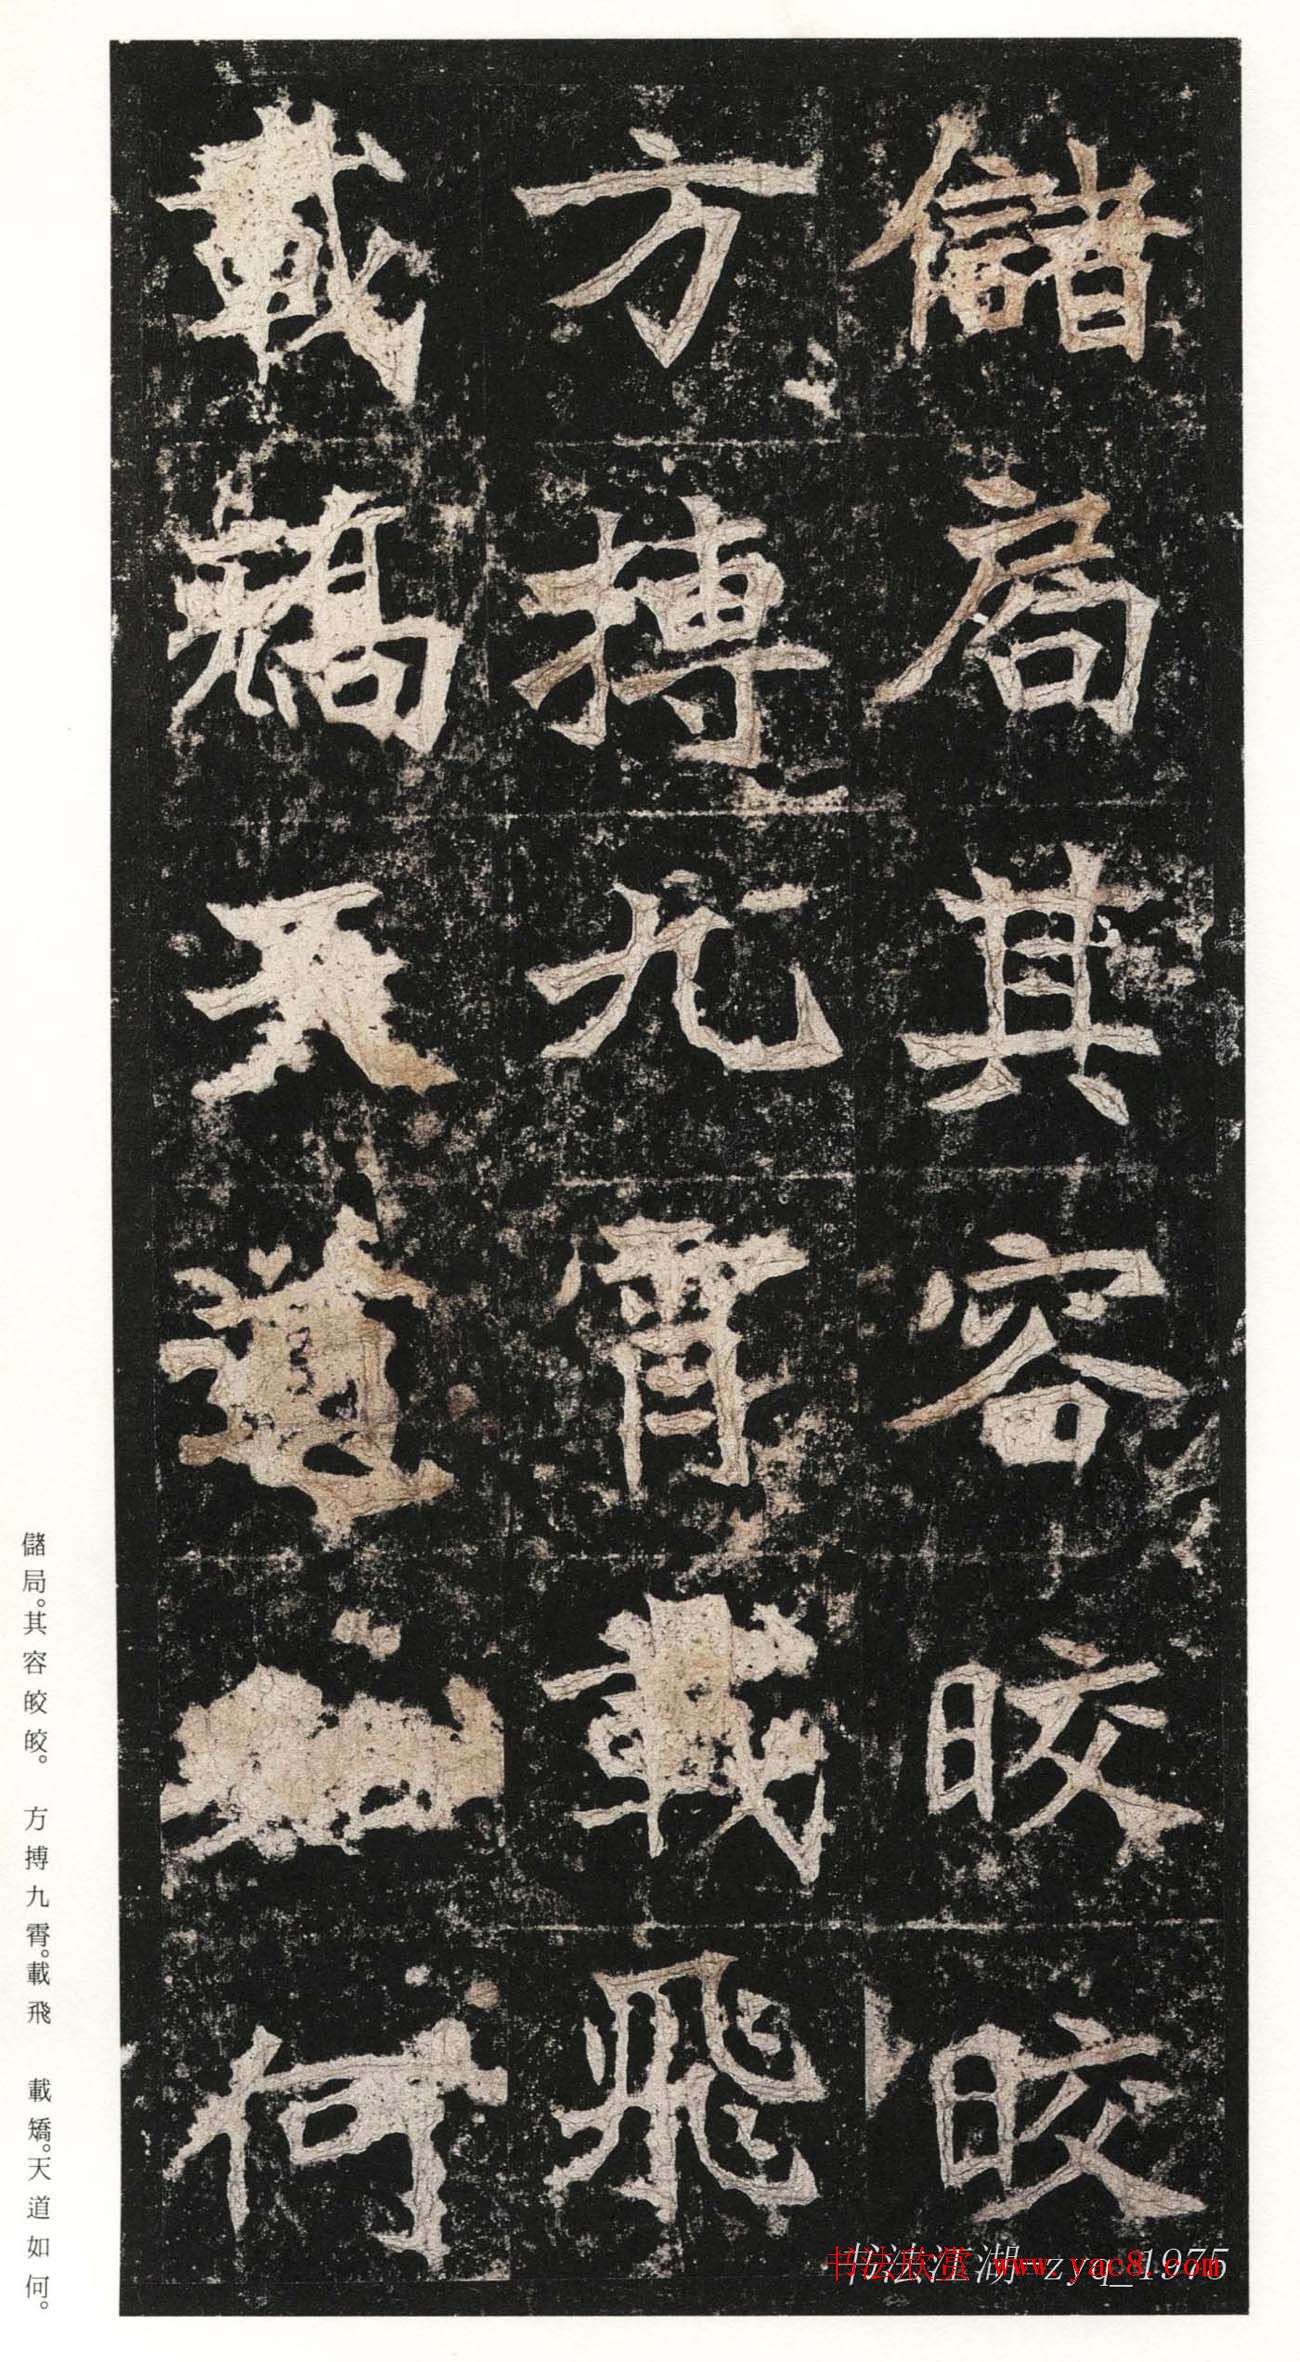 儲局其容皎皎
方搏九霄載飛
載矯天道如何
儲局。其容皎皎。 方搏九霄。載飛 載矯。天道如何。
书法欣赏 www.yac8.com
书法江湖-zyq_1975